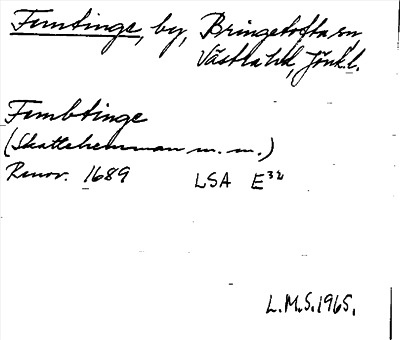 Femtinge, by, Bringetofta sn,
Västra hd, Jönk.l.
Fembtinge
(Skattehemman m. m.)
Renov. 1689 LSA E32
L.M.S. 1965.